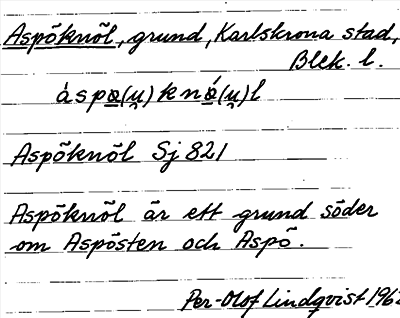 Aspöknöl, grund, Karlskrona stad,
Blek. l.
Aspöknöl Sj 821
Aspöknöl är ett grund söder
om Aspösten och Aspö.
Per-Olof Lindqvist